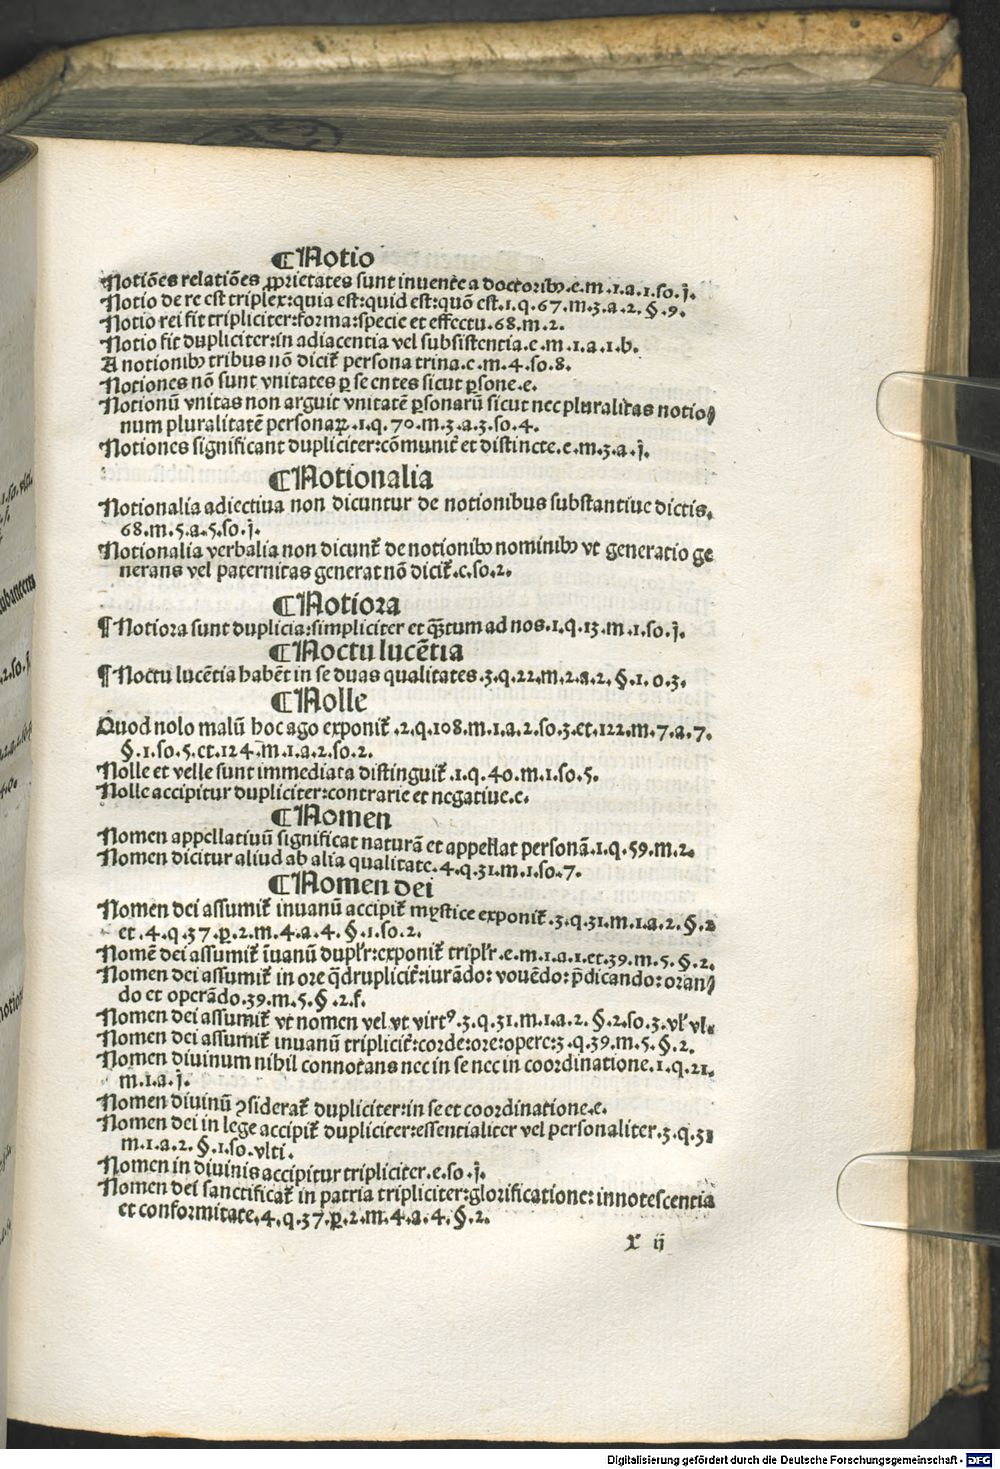 ¶Notio
Notiões relatiões ꝓprietates sunt inuente a doctoribꝰ.e.m.1.a.1.so.j.
Notio de re est triplex:quia est:quid est:quõ est.1.q.67.m.3.a.2.§.9.
Notio rei fit tripliciter:forma:specie et effectu.68.m.2.
Notio fit dupliciter:in adiacentia vel subsistentia.e.m.1.a.1.b.
A notionibꝰ tribus nõ dicit̃ persona trina.e.m.4.so.8.
Notiones nõ sunt vnitates ꝑ se entes sicut ꝑsone.e.
Notionũ vnitas non arguit vnitatẽ ꝑsonarũ sicut nec pluralitas notio
num pluralitatẽ personaꝝ.1.q.70.m.3.a.3.so.4.
Notiones significant dupliciter:cõmunit̃ et distincte.e.m.3.a.j.
¶Notionalia
Notionalia adiectiua non dicuntur de notionibus substantiue dictis.
68.m.5.a.5.so.j.
Notionalia verbalia non dicunt̃ de notionibꝰ nominibꝰ vt generatio ge
nerans vel paternitas generat nõ dicit̃.e.so.2.
¶Notiora
¶Notiora sunt duplicia:simpliciter et q̃ꝫtum ad nos.1.q.13.m.1.so.j.
¶Noctu lucẽtia
¶Noctu lucẽtia habẽt in se duas qualitates.3.q.22.m.2.a.2.§.1.o.3.
¶Nolle
Quod nolo malũ hoc ago exponit̃.2.q.108.m.1.a.2.so.3.et.122.m.7.a.7.
§.1.so.5.et.124.m.1.a.2.so.2.
Nolle et velle sunt immediata distinguit̃.1.q.40.m.1.so.5.
Nolle accipitur dupliciter:contrarie et negatiue.e.
¶Nomen
Nomen appellatiuũ significat naturã et appellat personã.1.q.59.m.2.
Nomen dicitur aliud ab alia qualitate.4.q.31.m.1.so.7.
¶Nomen dei
Nomen dei assumit̃ inuanũ accipit̃ mystice exponit̃.3.q.31.m.1.a.2.§.2
et.4.q.37.ꝑ.2.m.4.a.4.§.1.so.2.
Nomẽ dei assumit̃ ĩuanũ duplr̃:exponit̃ triplr̃.e.m.1.a.1.et.39.m.5.§.2.
Nomen dei assumit̃ in ore q̃druplicit̃:iurãdo:vouẽdo:p̃dicando:oran
do et operãdo.39.m.5.§.2.f.
Nomen dei assumit̃ vt nomen vel vt virtꝰ.3.q.31.m.1.a.2.§.2.so.3.vl̃ vl.
Nomen dei assumit̃ inuanũ triplicit̃:corde:ore:opere:3.q.39.m.5.§.2.
Nomen diuinum nihil connotans nec in se nec in coordinatione.1.q.21.
m.1.a.j.
Nomen diuinũ ꝯsiderat̃ dupliciter:in se et coordinatione.e.
Nomen dei in lege accipit̃ dupliciter:essentialiter vel personaliter.3.q.31
m.1.a.2.§.1.so.vlti.
Nomen in diuinis accipitur tripliciter.e.so.j.
Nomen dei sanctificat̃ in patria tripliciter:glorificatione:innotescentia
et conformitate.4.q.37.ꝑ.2.m.4.a.4.§.2.
r ij
Digitalisierung gefördert durch die Deutsche Forschungsgemeinschaft - DFG